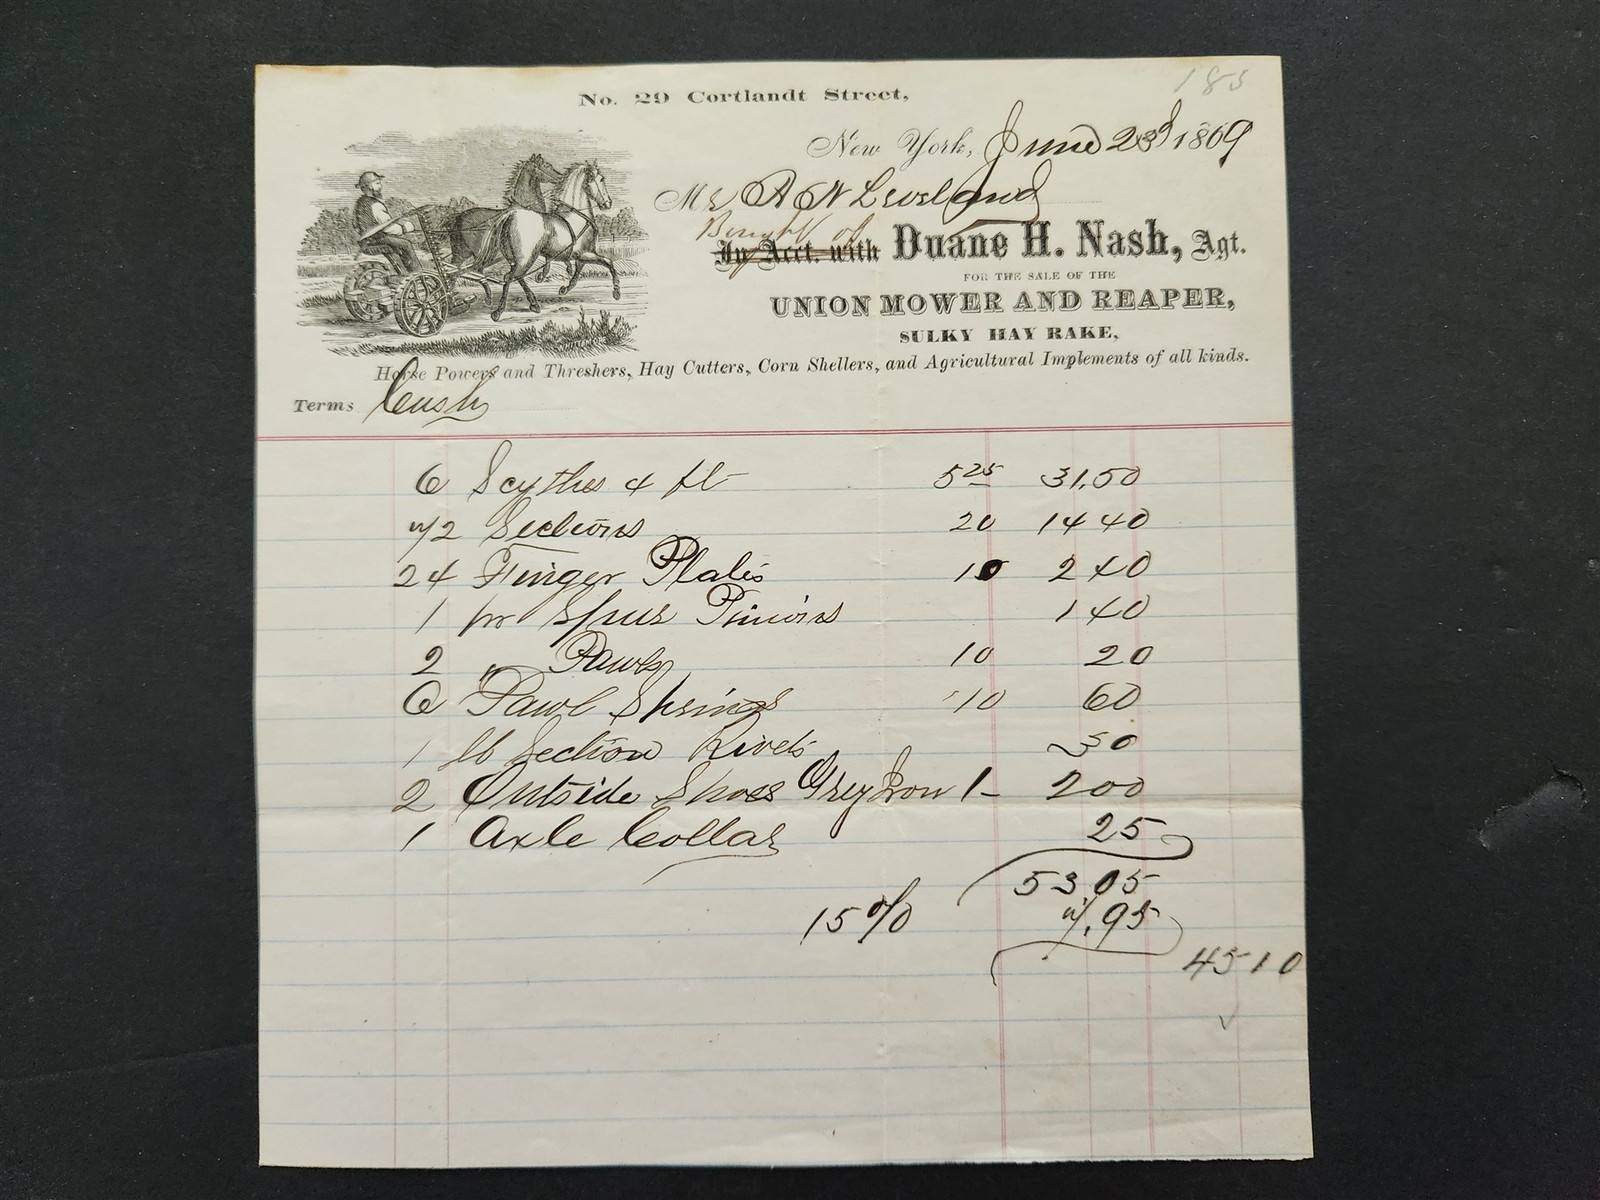 185
No. 29 Cortlandt Street,
New York, June 23d 1869
Mr A N Loveland
Bought of
In Acct. with Duane H. Nash, Agt.
FOR THE SALE OF THE
UNION MOWER AND REAPER,
SULKY HAY RAKE,
Horse Powers and Threshers, Hay Cutters, Corn Shellers, and Agricultural Implements of all kinds.
Terms Cash
6 Scythes 4 ft 5 25 31.50
72 Sections 20 14 40
24 Finger Plates 10 2 40
1 pr Spur Pinions 1 40
2 " Pawls 10 20
6 Pawl Springs 10 60
1 lb Section Rivets 50
2 Outside Shoes Grey Iron 1- 2 00
1 Axle Collar 25
53 05
15 % 7.95
45 10